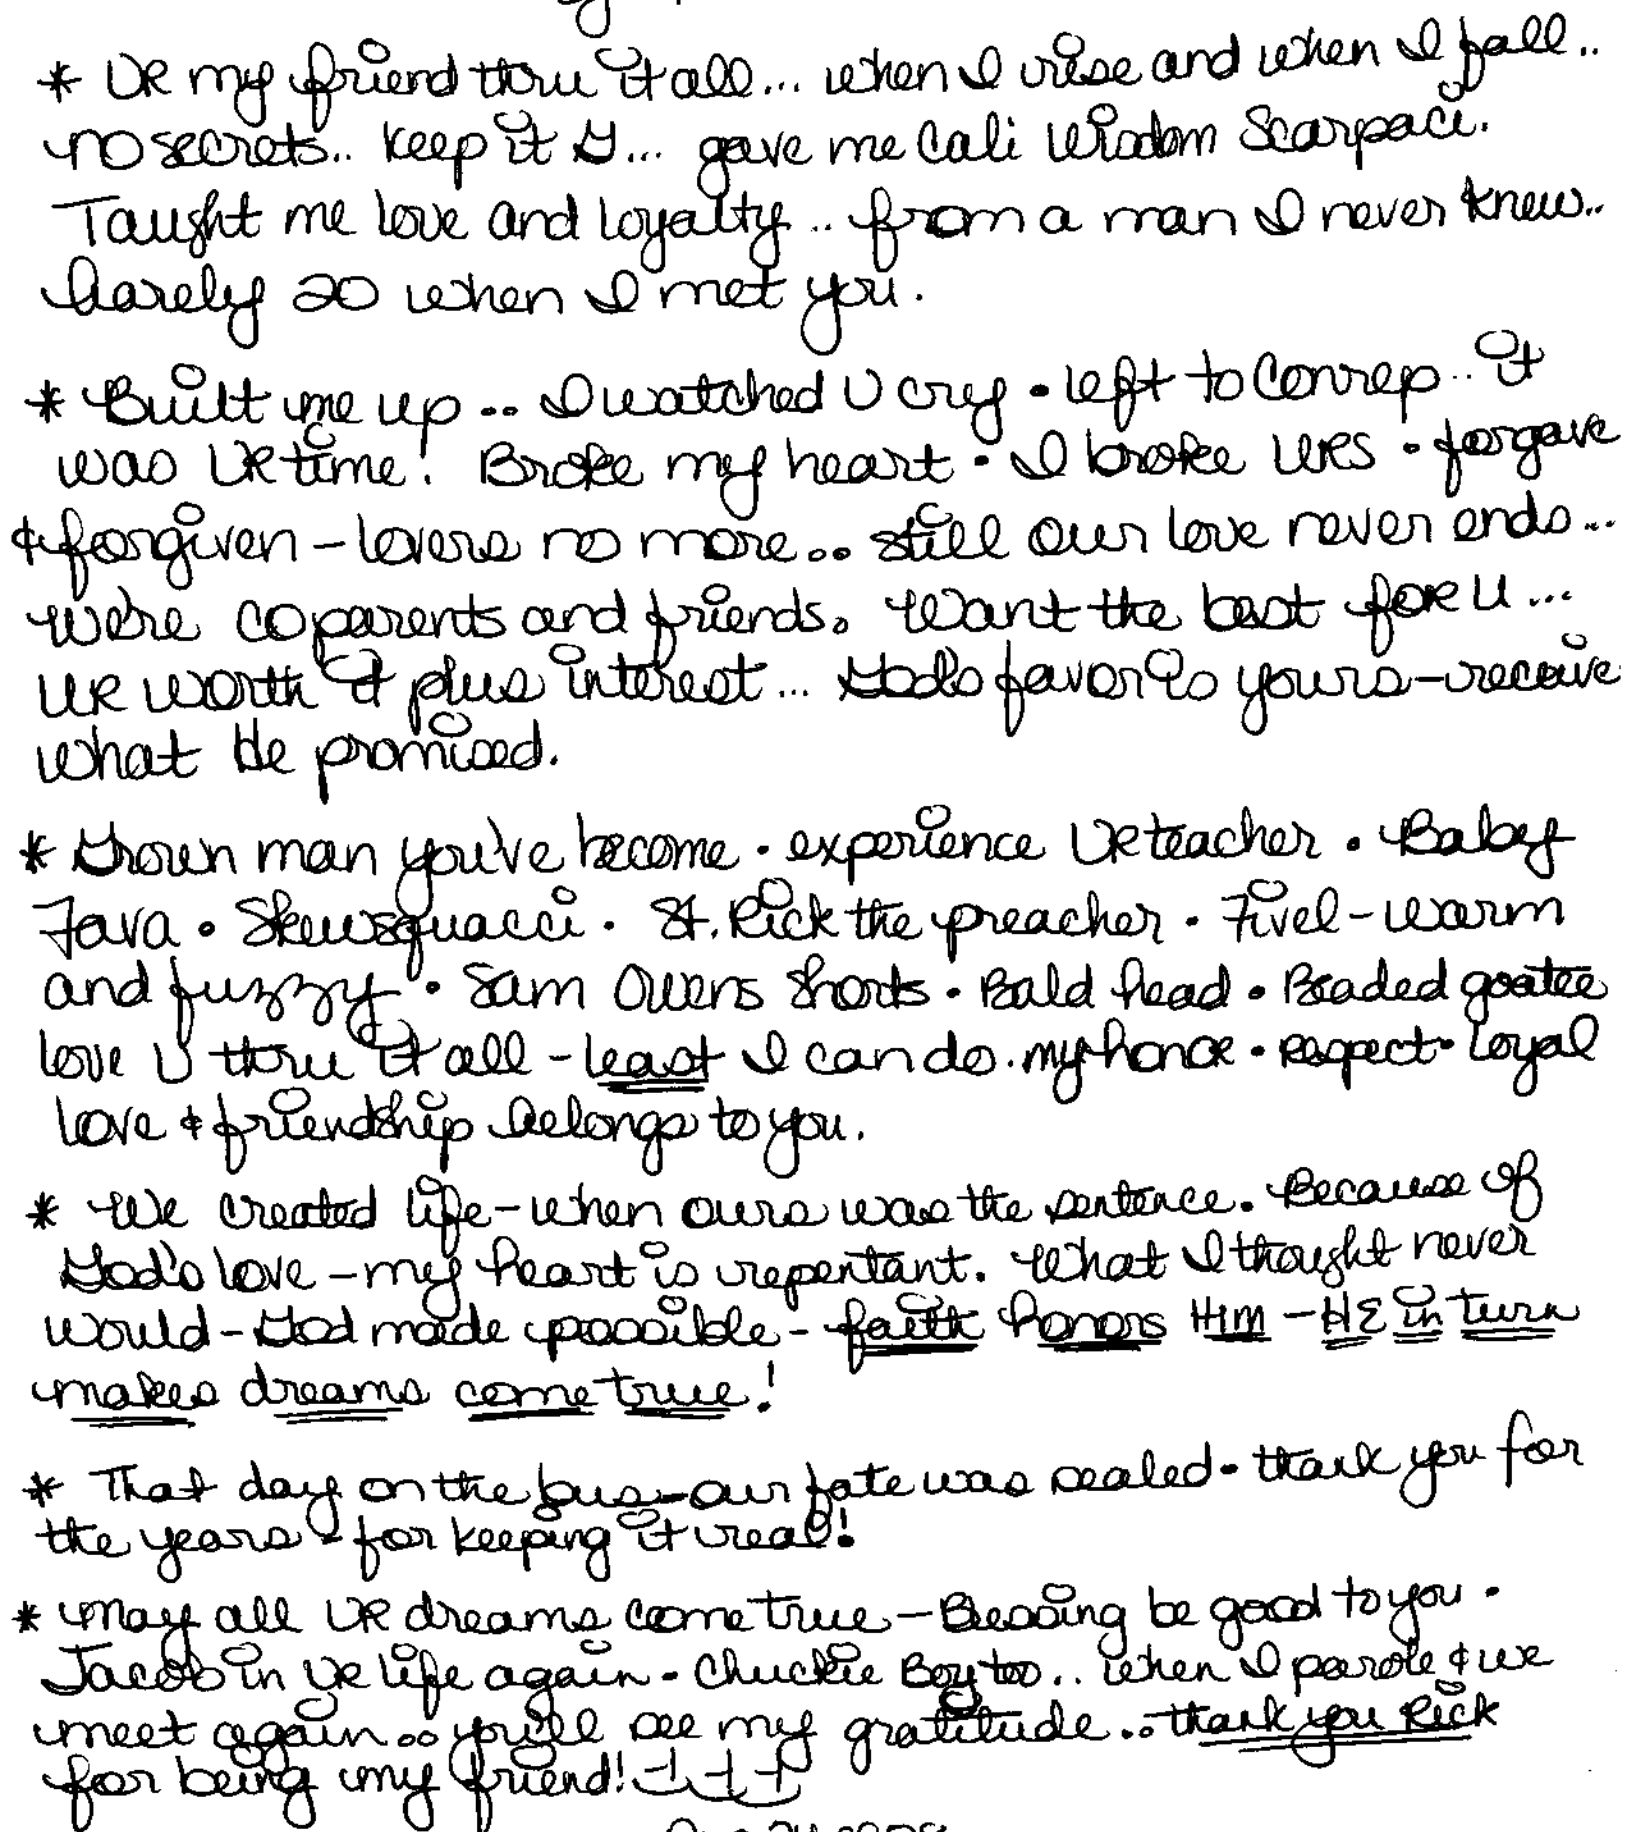 * UR my friend thru it all... when I rise and when I fall..
no secrets.. keep it G... gave me Cali Wisdom Scarpaci.
Taught me love and loyalty.. from a man I never knew..
barely 20 when I met you.
* Built me up.. I watched U cry • left to Conrep.. it
was UR time! Broke my heart • I broke URS • forgave
& forgiven - lovers no more.. still our love never ends...
we're coparents and friends. Want the best foR U...
UR worth it plus interest... God's favor is yours - receive
what He promised.
* Grown man you've become • experience UR teacher • Baby
Fava • Skewsquacci • St. Rick the preacher • Fivel - warm
and fuzzy • Sam Owens Shorts • Bald head • Beaded goatee
love U thru it all - least I can do. my honor • respect • Loyal
love & friendship belongs to you.
* We created life - when ours was the sentence. Because of
God's love - my heart is repentant. What I thought never
would - God made possible - faith honors HIM - HE in turn
makes dreams come true!
* That day on the bus - our fate was sealed • thank you for
the years - for keeping it real!
* may all UR dreams come true - Blessing be good to you •
Jacob in UR life again - Chuckie Boy too.. when I parole & we
meet again.. you'll see my gratitude.. thank you Rick
for being my friend!